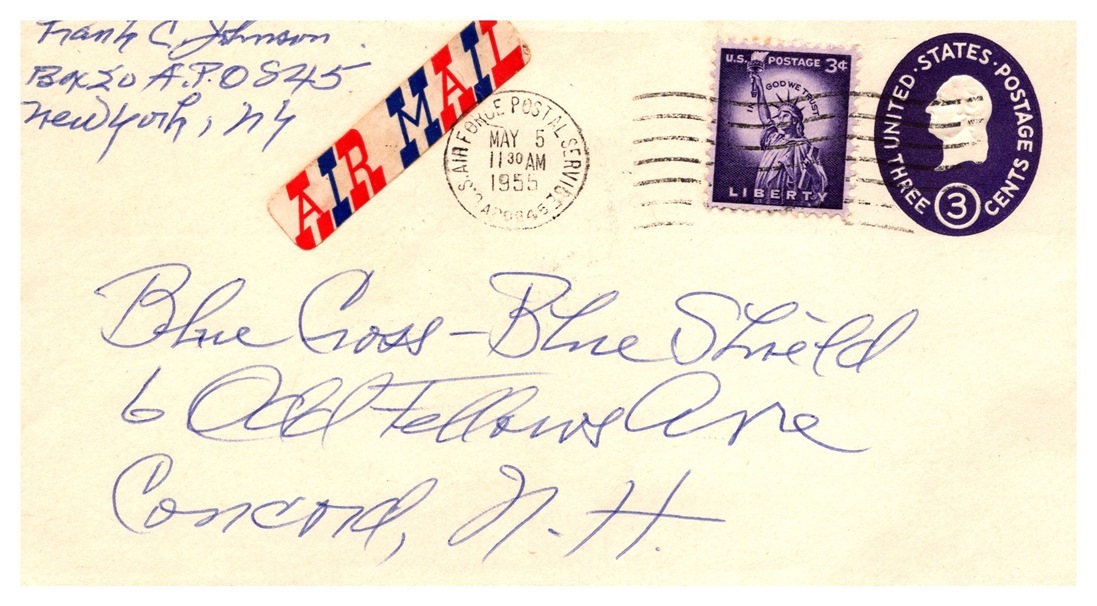 Frank C. Johnson.
Box 50 A.P.O 845
New York, NY
AIR MAIL
U.S. AIR FORCE POSTAL SERVICE
MAY 5
11 30 AM
1955
APO 845
U.S. POSTAGE 3¢
IN GOD WE TRUST
LIBERTY
UNITED·STATES·POSTAGE
THREE 3 CENTS
Blue Cross – Blue Shield
6 Odd Fellows Ave
Concord, N. H.